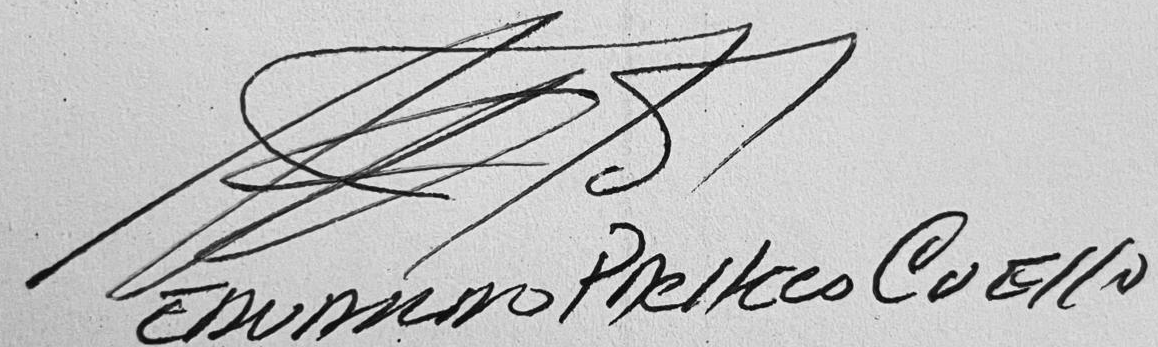 EDUARDO PACHECO CUELLO